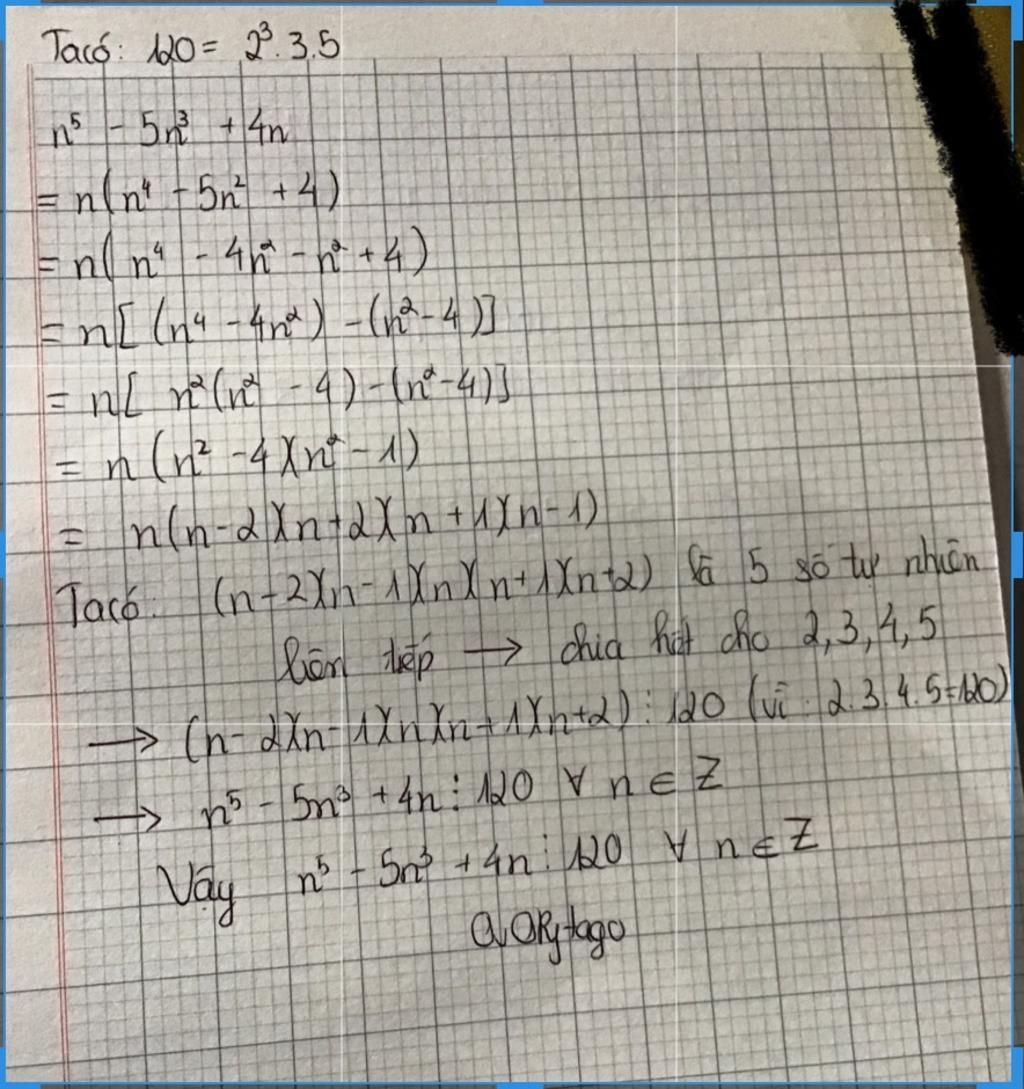 Ta có: 120 = 2³.3.5
n⁵ - 5n³ + 4n
= n(n⁴ - 5n² + 4)
= n(n⁴ - 4n² - n² + 4)
= n[(n⁴ - 4n²) - (n² - 4)]
= n[n²(n² - 4) - (n² - 4)]
= n(n² - 4)(n² - 1)
= n(n-2)(n+2)(n+1)(n-1)
Ta có: (n-2)(n-1)(n)(n+1)(n+2) là 5 số tự nhiên
liên tiếp → chia hết cho 2,3,4,5
→ (n-2)(n-1)(n)(n+1)(n+2) ⋮ 120 (vì: 2.3.4.5=120)
→ n⁵ - 5n³ + 4n ⋮ 120 ∀ n ∈ Z
Vậy n⁵ - 5n³ + 4n ⋮ 120 ∀ n ∈ Z